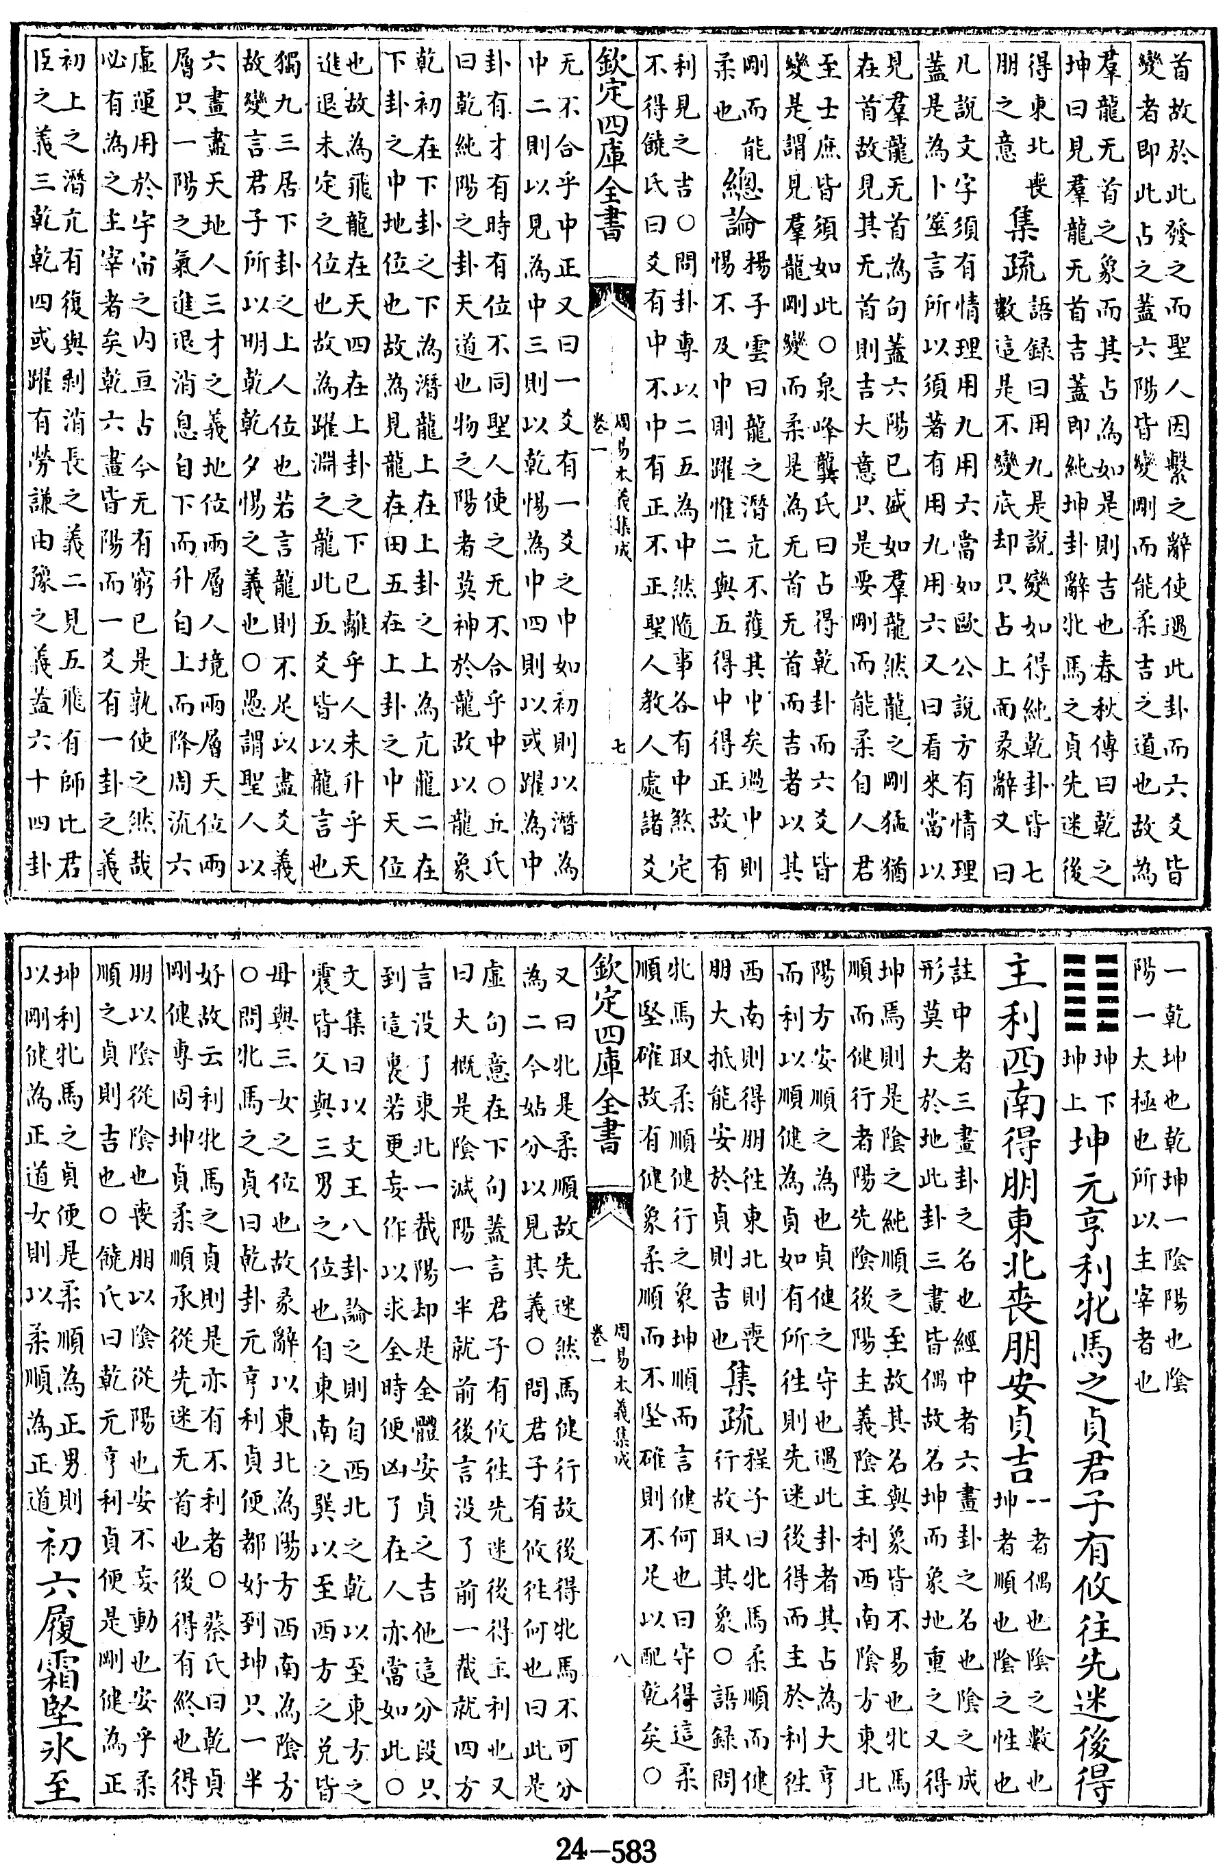 首故於此發之而聖人因繫之辭使遇此卦而六爻皆
變者即此占之蓋六陽皆變剛而能柔吉之道也故為
羣龍无首之象而其占為如是則吉也春秋傳曰乾之
坤曰見羣龍无首吉蓋即純坤卦辭牝馬之貞先迷後
得東北喪
朋之意
集疏
語録曰用九是說變如得純乾卦皆七
數這是不變底却只占上面彖辭又曰
凡說文字須有情理用九用六當如歐公說方有情理
蓋是為卜筮言所以須著有用九用六又曰看來當以
見羣龍无首為句蓋六陽已盛如羣龍然龍之剛猛猶
在首故見其无首則吉大意只是要剛而能柔自人君
至士庶皆須如此○泉峰龔氏曰占得乾卦而六爻皆
變是謂見羣龍剛變而柔是為无首无首而吉者以其
剛而能
柔也
總論
揚子雲曰龍之潛亢不獲其中矣過中則
惕不及中則躍惟二與五得中得正故有
利見之吉○問卦專以二五為中然隨事各有中煞定
不得饒氏曰爻有中不中有正不正聖人教人處諸爻
欽定四庫全書
周易本義集成
卷一
七
无不合乎中正又曰一爻有一爻之中如初則以潛為
中二則以見為中三則以乾惕為中四則以或躍為中
卦有才有時有位不同聖人使之无不合乎中○丘氏
曰乾純陽之卦天道也物之陽者莫神於龍故以龍象
乾初在下卦之下為潛龍上在上卦之上為亢龍二在
下卦之中地位也故為見龍在田五在上卦之中天位
也故為飛龍在天四在上卦之下已離乎人未升乎天
進退未定之位也故為躍淵之龍此五爻皆以龍言也
獨九三居下卦之上人位也若言龍則不足以盡爻義
故變言君子所以明乾乾夕惕之義也○愚謂聖人以
六畫畫天地人三才之義地位兩層人境兩層天位兩
層只一陽之氣進退消息自下而升自上而降周流六
虛運用於宇宙之内亘古今无有窮已是孰使之然哉
必有為之主宰者矣乾六畫皆陽而一爻有一卦之義
初上之潛亢有復與剥消長之義二見五飛有師比君
臣之義三乾乾四或躍有勞謙由豫之義蓋六十四卦
一乾坤也乾坤一陰陽也陰
陽一太極也所以主宰者也
坤下
坤上
坤元亨利牝馬之貞君子有攸往先迷後得
主利西南得朋東北喪朋安貞吉
--者偶也陰之數也
坤者順也陰之性也
註中者三畫卦之名也經中者六畫卦之名也陰之成
形莫大於地此卦三畫皆偶故名坤而象地重之又得
坤焉則是陰之純順之至故其名與象皆不易也牝馬
順而健行者陽先陰後陽主義陰主利西南陰方東北
陽方安順之為也貞健之守也遇此卦者其占為大亨
而利以順健為貞如有所往則先迷後得而主於利往
西南則得朋往東北則喪
朋大抵能安於貞則吉也
集疏
程子曰牝馬柔順而健
行故取其象○語録問
牝馬取柔順健行之象坤順而言健何也曰守得這柔
順堅確故有健象柔順而不堅確則不足以配乾矣○
欽定四庫全書
周易本義集成
卷一
八
又曰牝是柔順故先迷然馬健行故後得牝馬不可分
為二今姑分以見其義○問君子有攸往何也曰此是
虛句意在下句蓋言君子有攸往先迷後得主利也又
曰大概是陰減陽一半就前後言没了前一截就四方
言没了東北一截陽却是全體安貞之吉他這分段只
到這裏若更妄作以求全時便凶了在人亦當如此○
文集曰以文王八卦論之則自西北之乾以至東方之
震皆父與三男之位也自東南之巽以至西方之兑皆
母與三女之位也故彖辭以東北為陽方西南為陰方
○問牝馬之貞曰乾卦元亨利貞便都好到坤只一半
好故云利牝馬之貞則是亦有不利者○蔡氏曰乾貞
剛健專固坤貞柔順承從先迷无首也後得有終也得
朋以陰從陰也喪朋以陰從陽也安不妄動也安乎柔
順之貞則吉也○饒氏曰乾元亨利貞便是剛健為正
坤利牝馬之貞便是柔順為正男則
以剛健為正道女則以柔順為正道
初六履霜堅氷至
24-583